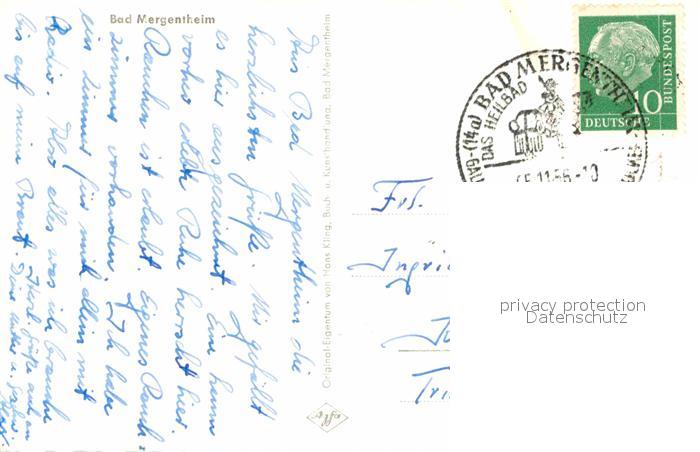 Bad Mergentheim
Aus Bad Mergentheim die
herzlichsten Grüße. Mir gefällt
es hier ausgezeichnet. Eine
vorher Ruhe herrscht hier.
Rauchen ist erlaubt. Eigenes Rauch-
zimmer vorhanden. Ich habe
ein Zimmer für mich allein mit
Radio. Also alles was ich brauche
bis auf meine Braut.
Grüße auch an
Deine
Original-Eigentum von Hans Kling, Buch- u. Kunsthandlung, Bad Mergentheim
afro
(14a) BAD MERGENTHEIM
DAS HEILBAD
11.56-10
10
DEUTSCHE
BUNDESPOST
Frl.
Ingri
privacy protection
Datenschutz